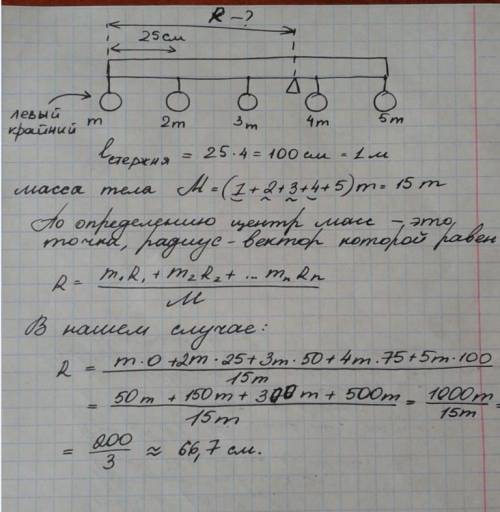 R - ?
25 см
левый
крайний
m 2m 3m 4m 5m
lстержня = 25·4 = 100 см = 1 м
масса тела M = (1+2+3+4+5)m = 15 m
По определению центр масс - это
точка, радиус-вектор которой равен
R = m₁R₁ + m₂R₂ + ... mₙRₙ
M
В нашем случае:
R = m·0 + 2m·25 + 3m·50 + 4m·75 + 5m·100
15m
= 50m + 150m + 300m + 500m = 1000m =
15m 15m
= 200 ≈ 66,7 см.
3